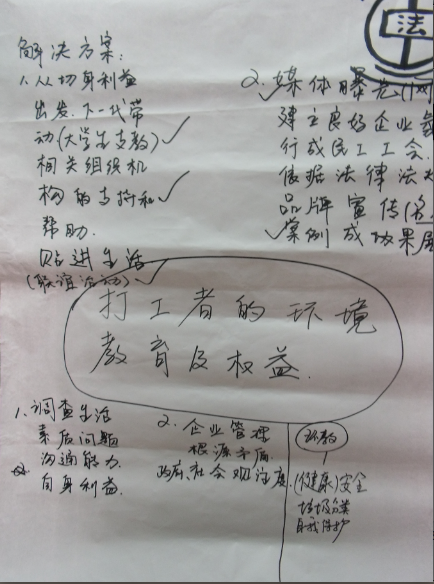 法
解决方案:
1. 从切身利益
出发.下一代带
动(大学生支教)✓
相关组织机
构的支持和✓
帮助.
贴进生活
(联谊活动)✓
2. 媒体曝光(网
建立良好企业
行或民工工会.
依据法律法
品牌宣传(名
✓案例成功果展
打工者的环境
教育及权益.
1、调查生活
素质问题
沟通能力
自身利益.
2. 企业管理
根源矛盾
政府、社会观注度.
环教
(健康)安全
垃圾分类
自我保护